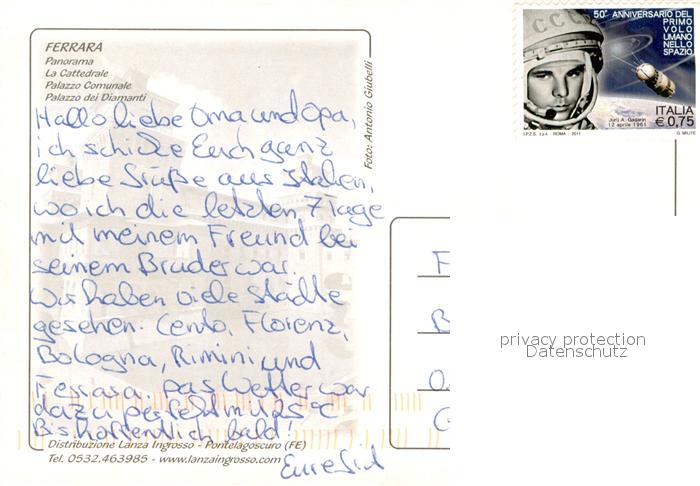 FERRARA
Panorama
La Cattedrale
Palazzo Comunale
Palazzo dei Diamanti
Hallo liebe Oma und Opa,
ich schicke Euch ganz
liebe Grüße aus Italien,
wo ich die letzten 7 Tage
mit meinem Freund bei
seinem Bruder war.
Wir haben viele Städte
gesehen: Cento, Florenz,
Bologna, Rimini und
Ferrara. Das Wetter war
dazu perfekt mit 25°C
Bis hoffentlich bald!
Eure
Distribuzione Lanza Ingrosso - Pontelagoscuro (FE)
Tel. 0532.463985 - www.lanzaingrosso.com
Foto: Antonio Giubelli
СССР
50° ANNIVERSARIO DEL
PRIMO
VOLO
UMANO
NELLO
SPAZIO
ITALIA
€ 0,75
Jurij A. Gagarin
12 aprile 1961
I.P.Z.S. S.p.A. - ROMA - 2011
G. MILITE
F
B
G
privacy protection
Datenschutz